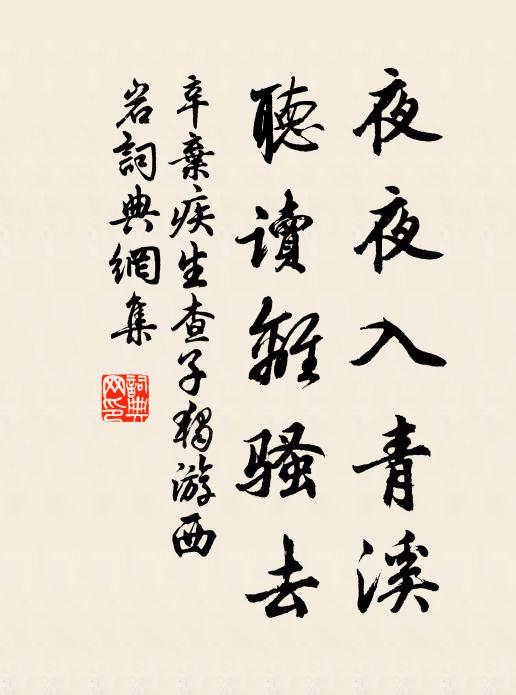 夜夜入青溪
聽讀離騷去
辛棄疾生查子獨游西
岩詞典網集
詞典網印